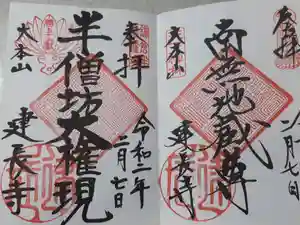 奉拝
令和二年
二月七日
半僧坊大権現
大本山
建長寺
奉拝
二月七日
南無地蔵尊
大本山
建長寺